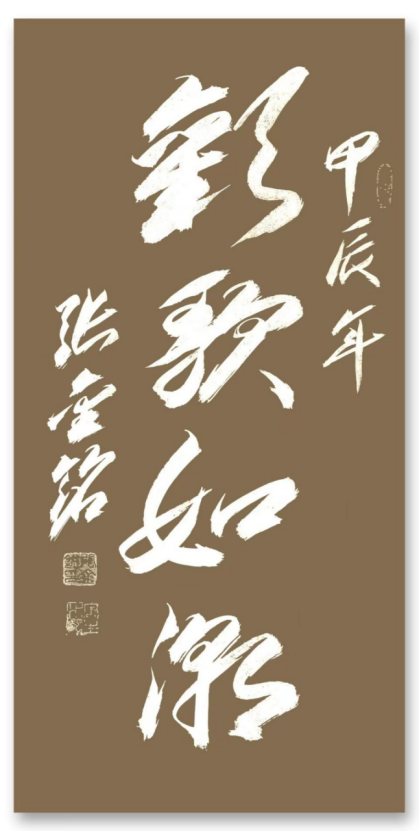 甲辰年
歡歌如潮
张金铭